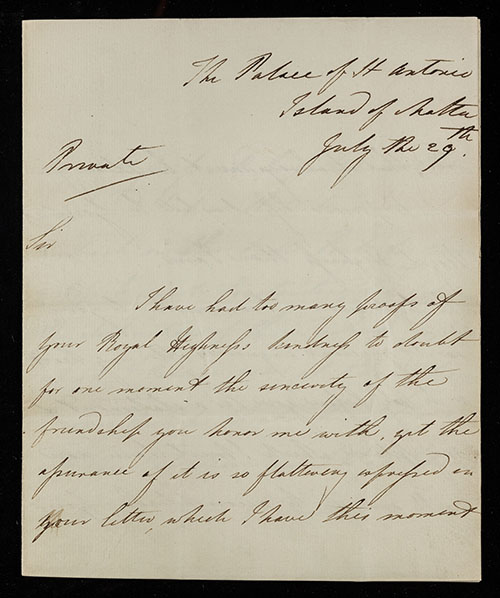 The Palace of St Antonio
Island of Malta
July the 29th.
Private
Sir
I have had too many proofs of
your Royal Highness's kindness to doubt
for one moment the sincerity of the
friendship you honor me with, yet the
assurance of it is so flattering expressed in
your letter, which I have this moment